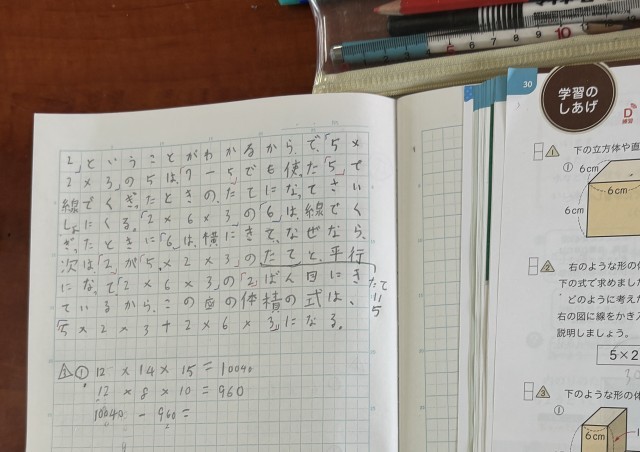 2」ということがわかるから。で、「5×
2×3」の5は、「7-5」でも使った「5」で
線でくぎったときのたてになってさい
しょにくる。「2×6×3」の「6」は、線でく
ぎったときに「6」は、横にきて、なぜなら、
次は「2」が「5×2×3」のたてと、平行
になって「2×6×3」の「2」ばん目にき
ているから、この図の体積の式は、
「5×2×3+2×6×3」になる。
たて
=
5
① 12×14×15=10040
12×8×10=960
10040-960=
30
学習の
しあげ
D
練習
1
下の立方体や直
①
6cm
6cm
6cm
2
右のような形の体
下の式で求めました
どのように考えた
右の図に線をかき入
説明しましょう。
5×2
3
下のような形の体
①
6cm